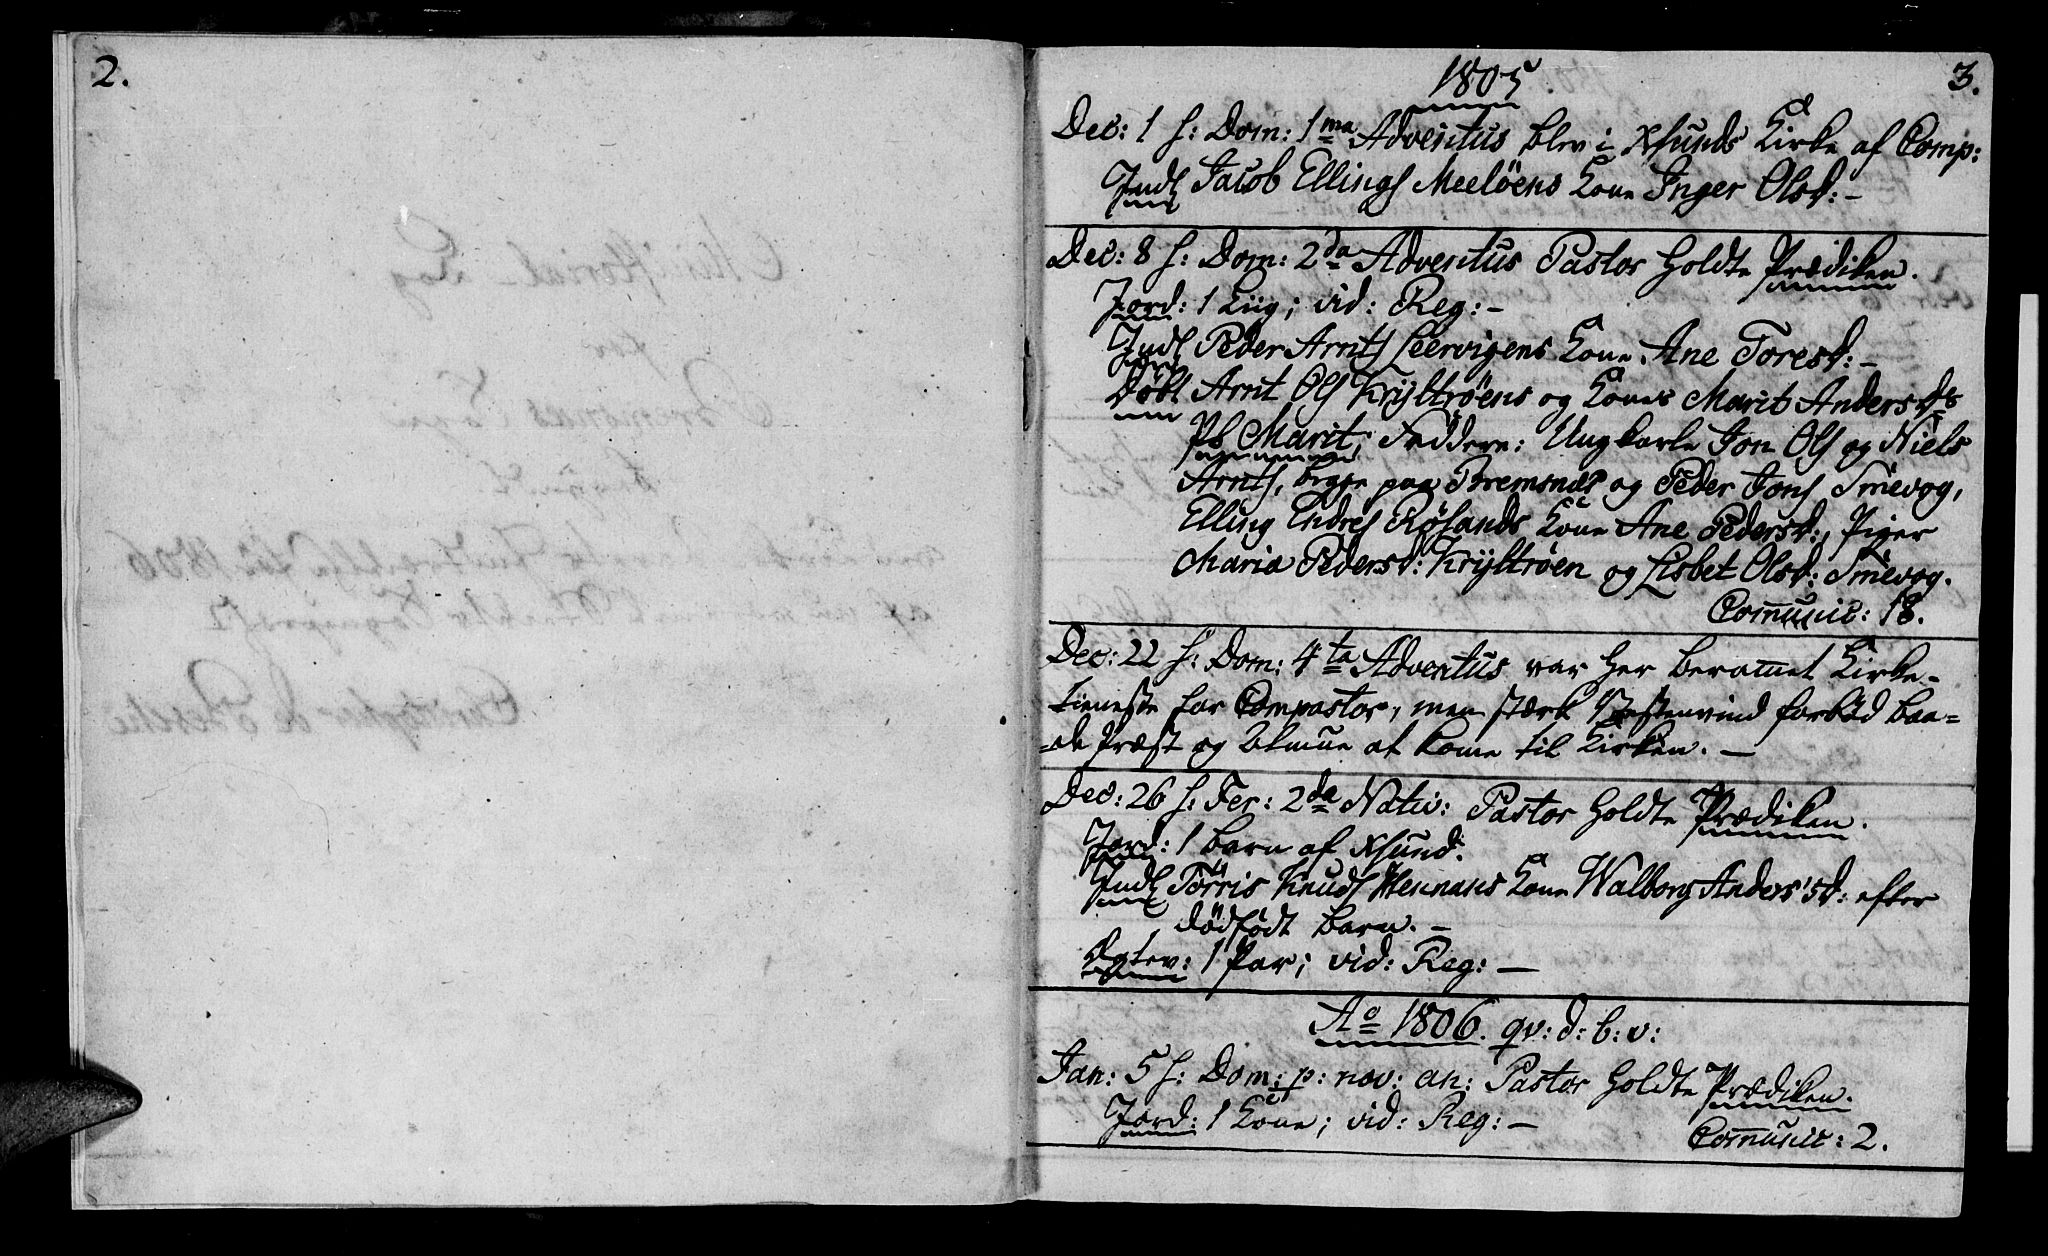 2.
3.
1805.
Dec: 1 s: Dom: 1ma Adventus blev i Xsunds Kirke af Comp:
Indl Jacob Ellings Meelöens Kone Inger Olsd: -
Dec: 8 s: Dom: 2da Adventus Pastor holdte Prædiken.
Jord: 1 Liig; vid: Reg: -
Indl Peder Arnts Leervigens Kone Ane Toresd: -
Döbt Arnt Ols Kryltröens og Kones Marit Andersds
Pb Marit, Faddere: Ungkarle Jon Ols og Niels
Arnts, begge paa Bremsnæs og Peder Jons Smevog,
Elling Endres Rösands Kone Ane Pedersd:, Piger
Maria Pedersd: Kryltröen og Lisbet Olsd: Smevog.
Comunic: 18.
Dec: 22 s: Dom: 4ta Adventus var her beramet Kirke-
tieneste for Compastor, men stærk Vestenvind forböd baa=
=de Præst og Almue at kome til Kirken. -
Dec: 26 s: Fer: 2da Nativ: Pastor holdte Prædiken.
Jord: 1 barn af Xsund.
Indl Törris Knuds Hennans Kone Walborg Anders'sd: efter
dödfödt barn. -
Egtev: 1 Par; vid: Reg: -
Ao 1806. qv: d: b: v:
Jan: 5 s: Dom: p: nov: an: Pastor holdte Prædiken.
Jord: 1 Kone; vid: Reg: -
Comunic: 2.